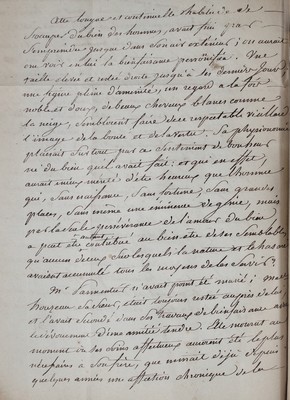 Cette longue et continuelle habitude de
s'occuper du bien des hommes, avait fini par
s'empreindre jusque dans son air extérieur; on aurait
cru voir en lui la bienfaisance personnifiée. Une
taille élevée et restée droite jusqu'à ses derniers jours,
une figure pleine d'aménité, un regard à la fois
noble et doux, de beaux cheveux blancs comme
la neige, semblaient faire de ce respectable vieillard
l'image de la bonté et de la vertu. Sa physionomie
plaisait surtout par ce sentiment de bonheur
né du bien qu'il avait fait: et qui en effet,
aurait mieux mérité d'être heureux que l'homme
qui, sans naissance, sans fortune, sans grandes
places, sans même une éminence de génie, mais
par la seule persévérance de l'amour du bien,
a peut être contribué autant au bien être de ses semblables
qu'aucun de ceux sur lesquels la nature et le hasard
avaient accumulé tous les moyens de les servir?
Mr. Parmentier n'avait point été marié; Mad.
houzeau sa sœur, était toujours restée auprès de lui
et l'avait secondé dans ses travaux de bienfaisance avec
le dévouement d'une amitié tendre. Elle mourut au
moment où ses soins affectueux auraient été le plus
nécessaires à son frère, que minait déjà depuis
quelques années une affection chronique de la